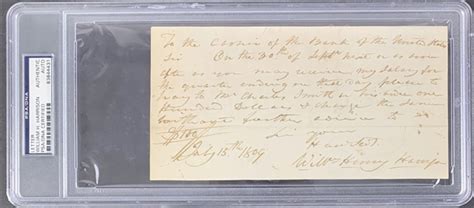 PSA/DNA
LETTER
WILLIAM H. HARRISON
PSA/DNA CERTIFIED
AUTHENTIC
AUTO
To the Cashier of the Bank of the United States
Sir On the 30th of Septr next or as soon
after as you may receive my Salary for
the quarter ending on that day please to
pay to Mr Charles Smith or his order one
hundred Dollars & charge the same
without further advice to
$100 Sir your
Humb Servt
July 15th 1809 Willm Henry Harrison